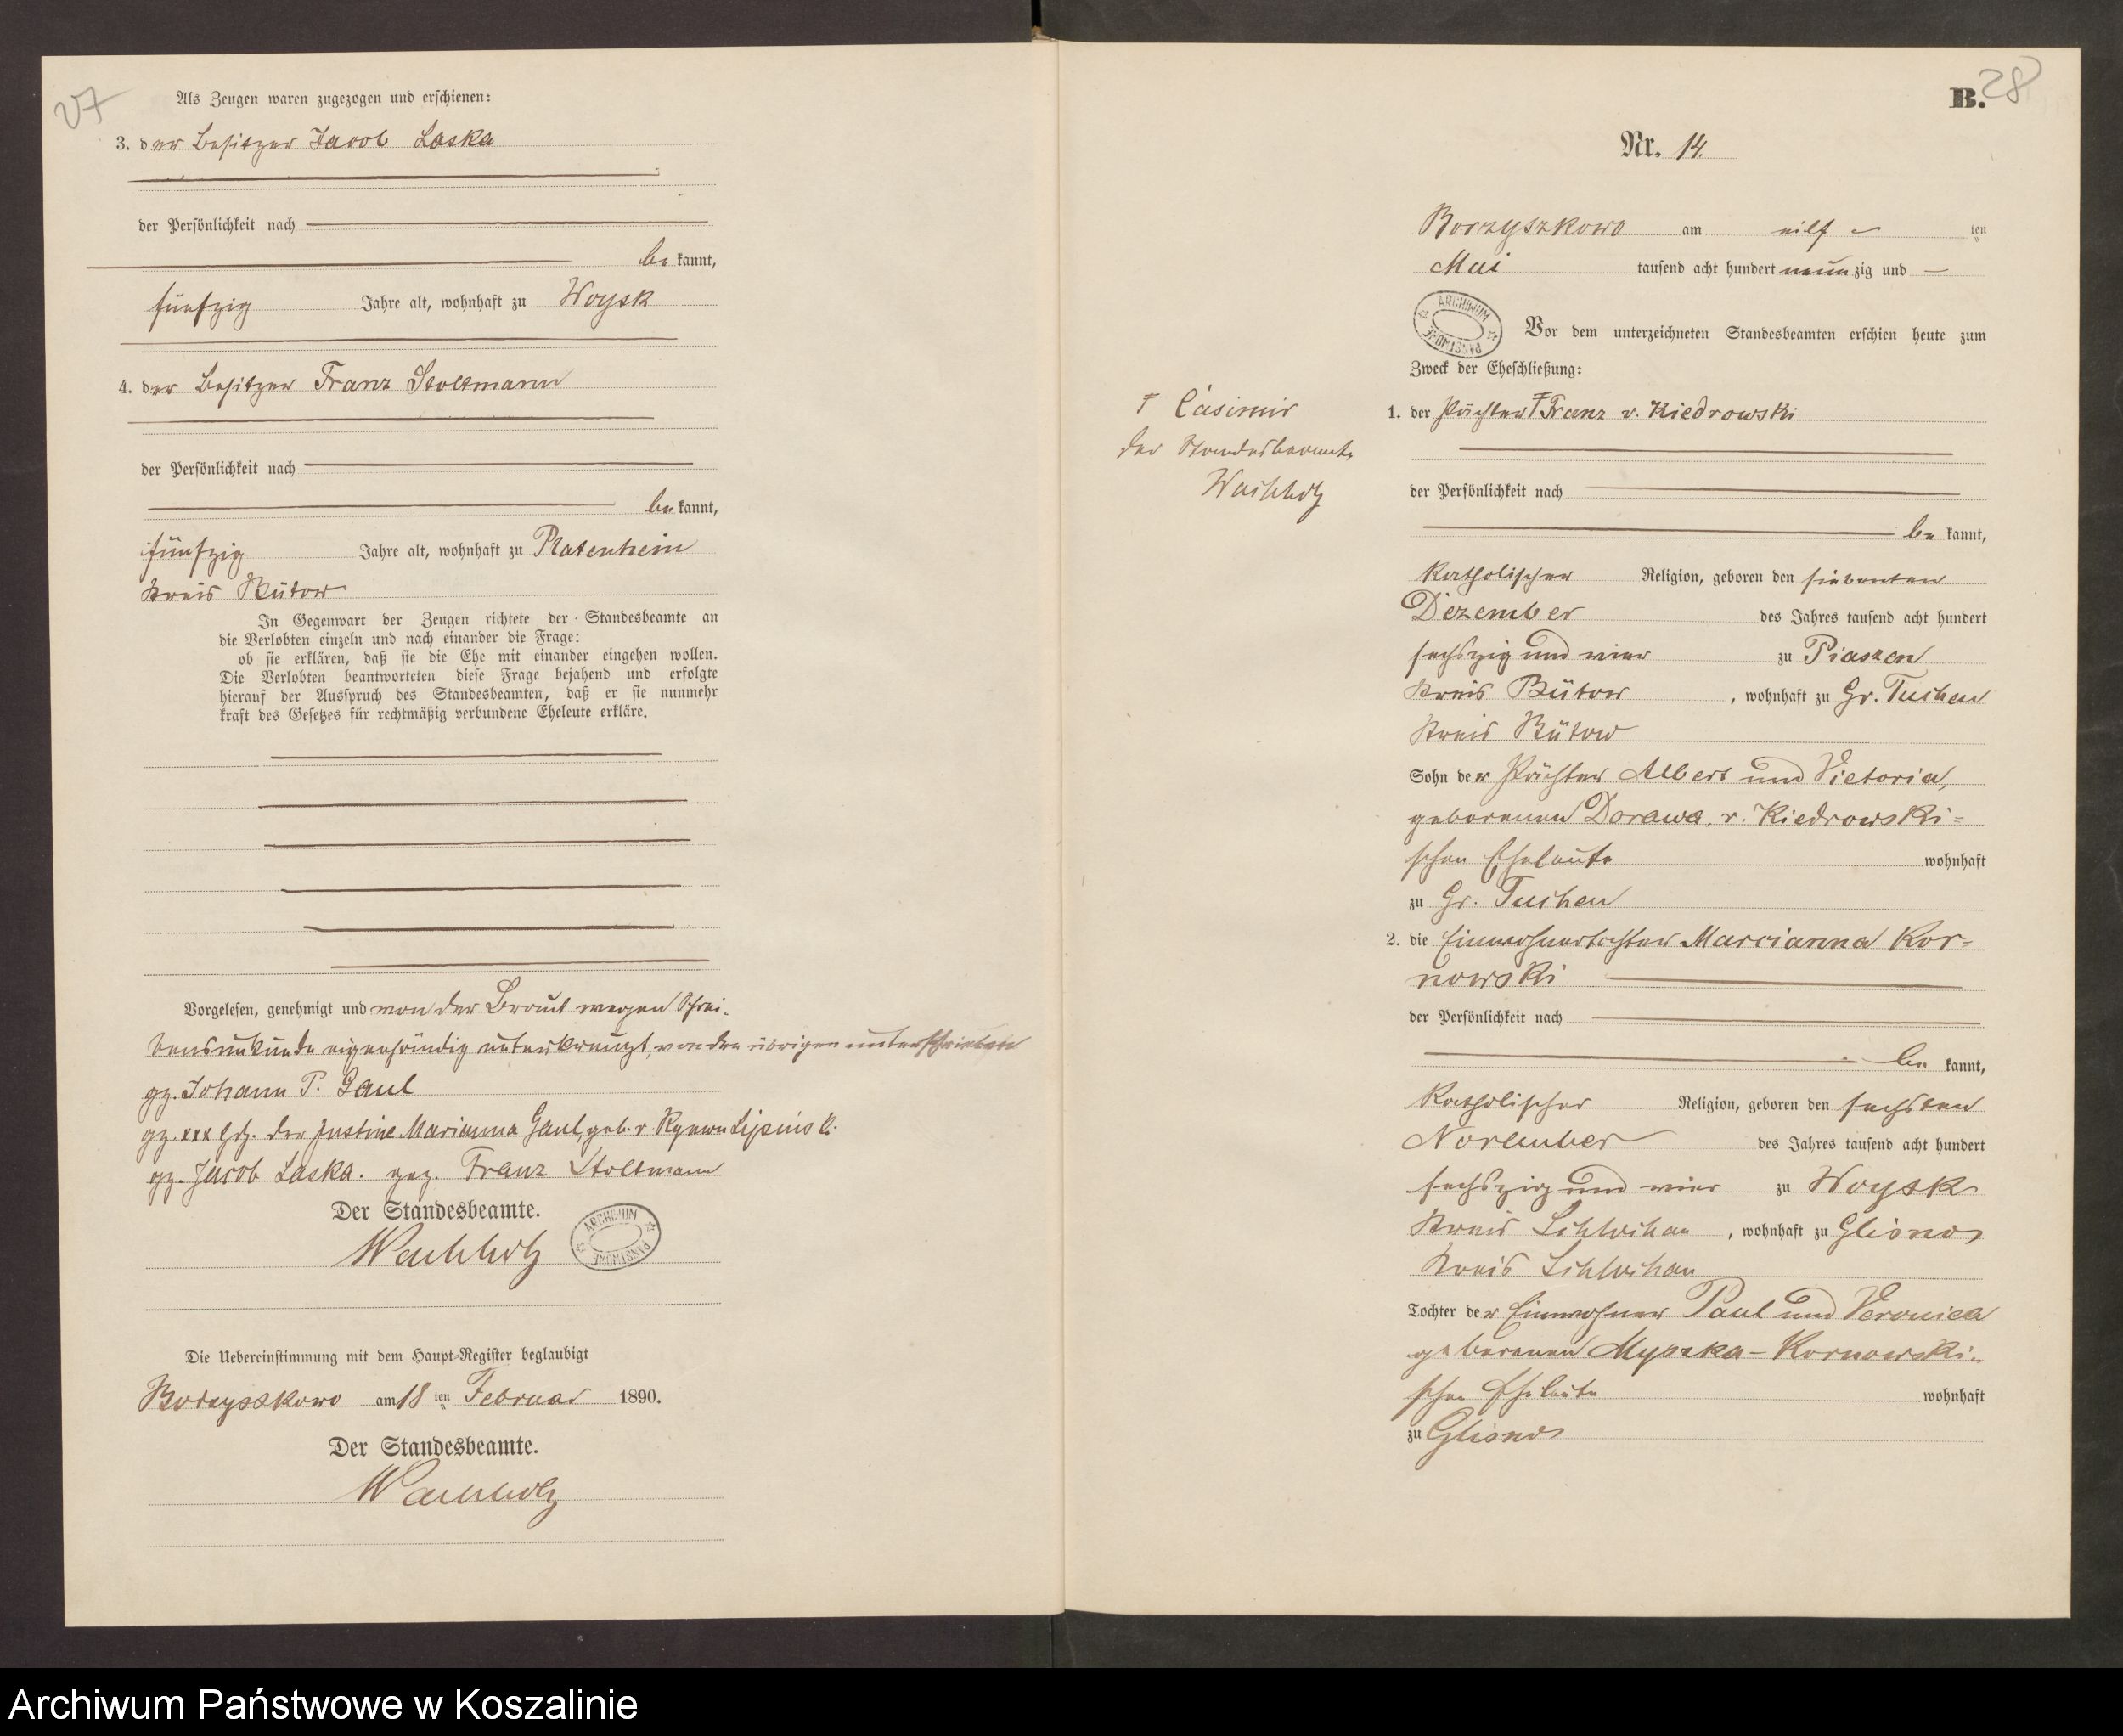 27
Als Zeugen waren zugezogen und erschienen:
3. der Besitzer Jacob Laska
der Persönlichkeit nach
be kannt,
fünfzig Jahre alt, wohnhaft zu Woysk
4. der Besitzer Franz Stoltmann
der Persönlichkeit nach
be kannt,
fünfzig Jahre alt, wohnhaft zu Platenhein
Kreis Bütow
In Gegenwart der Zeugen richtete der Standesbeamte an
die Verlobten einzeln und nach einander die Frage:
ob sie erklären, daß sie die Ehe mit einander eingehen wollen.
Die Verlobten beantworteten diese Frage bejahend und erfolgte
hierauf der Ausspruch des Standesbeamten, daß er sie nunmehr
kraft des Gesetzes für rechtmäßig verbundene Eheleute erkläre.
Vorgelesen, genehmigt und von der Braut wegen Schrei-
bensunkunde eigenhändig unterkreuzt, von den übrigen unterschrieben
gz. Johann P. Gaul
gz. xxx Hdz. der Justine Marianna Gaul, geb. v Lipinski.
gz. Jacob Laska. gez. Franz Stoltmann
Der Standesbeamte.
Wachholz
ARCHIWUM PAŃSTWOWE
Die Uebereinstimmung mit dem Haupt-Register beglaubigt
Borzyszkowo am 18 ten Februar 1890.
Der Standesbeamte.
Wachholz
B. 28
Nr. 14.
Borzyszkowo am eilf ten
Mai tausend acht hundert neun zig und —
ARCHIWUM PAŃSTWOWE
Vor dem unterzeichneten Standesbeamten erschien heute zum
Zweck der Eheschließung:
Casimir
der Standesbeamte
Wachholz
1. der Pächter Franz v. Kiedrowski
der Persönlichkeit nach
be kannt,
katholischer Religion, geboren den siebenten
Dezember des Jahres tausend acht hundert
sechszig und vier zu Piaszen
Kreis Bütow, wohnhaft zu Gr. Tuchen
Kreis Bütow
Sohn der Pächter Albert und Victoria,
geborenen Dorawa, v. Kiedrowski-
schen Eheleute wohnhaft
zu Gr. Tuchen
2. die Einwohnertochter Marcianna Kor-
nowski
der Persönlichkeit nach
be kannt,
katholischer Religion, geboren den sechsten
November des Jahres tausend acht hundert
sechszig und vier zu Woysk
Kreis Schlochau, wohnhaft zu Glisno
Kreis Schlochau
Tochter der Einwohner Paul und Veronica
geborenen Myszka-Kornowski-
schen Eheleute wohnhaft
zu Glisno
Archiwum Państwowe w Koszalinie